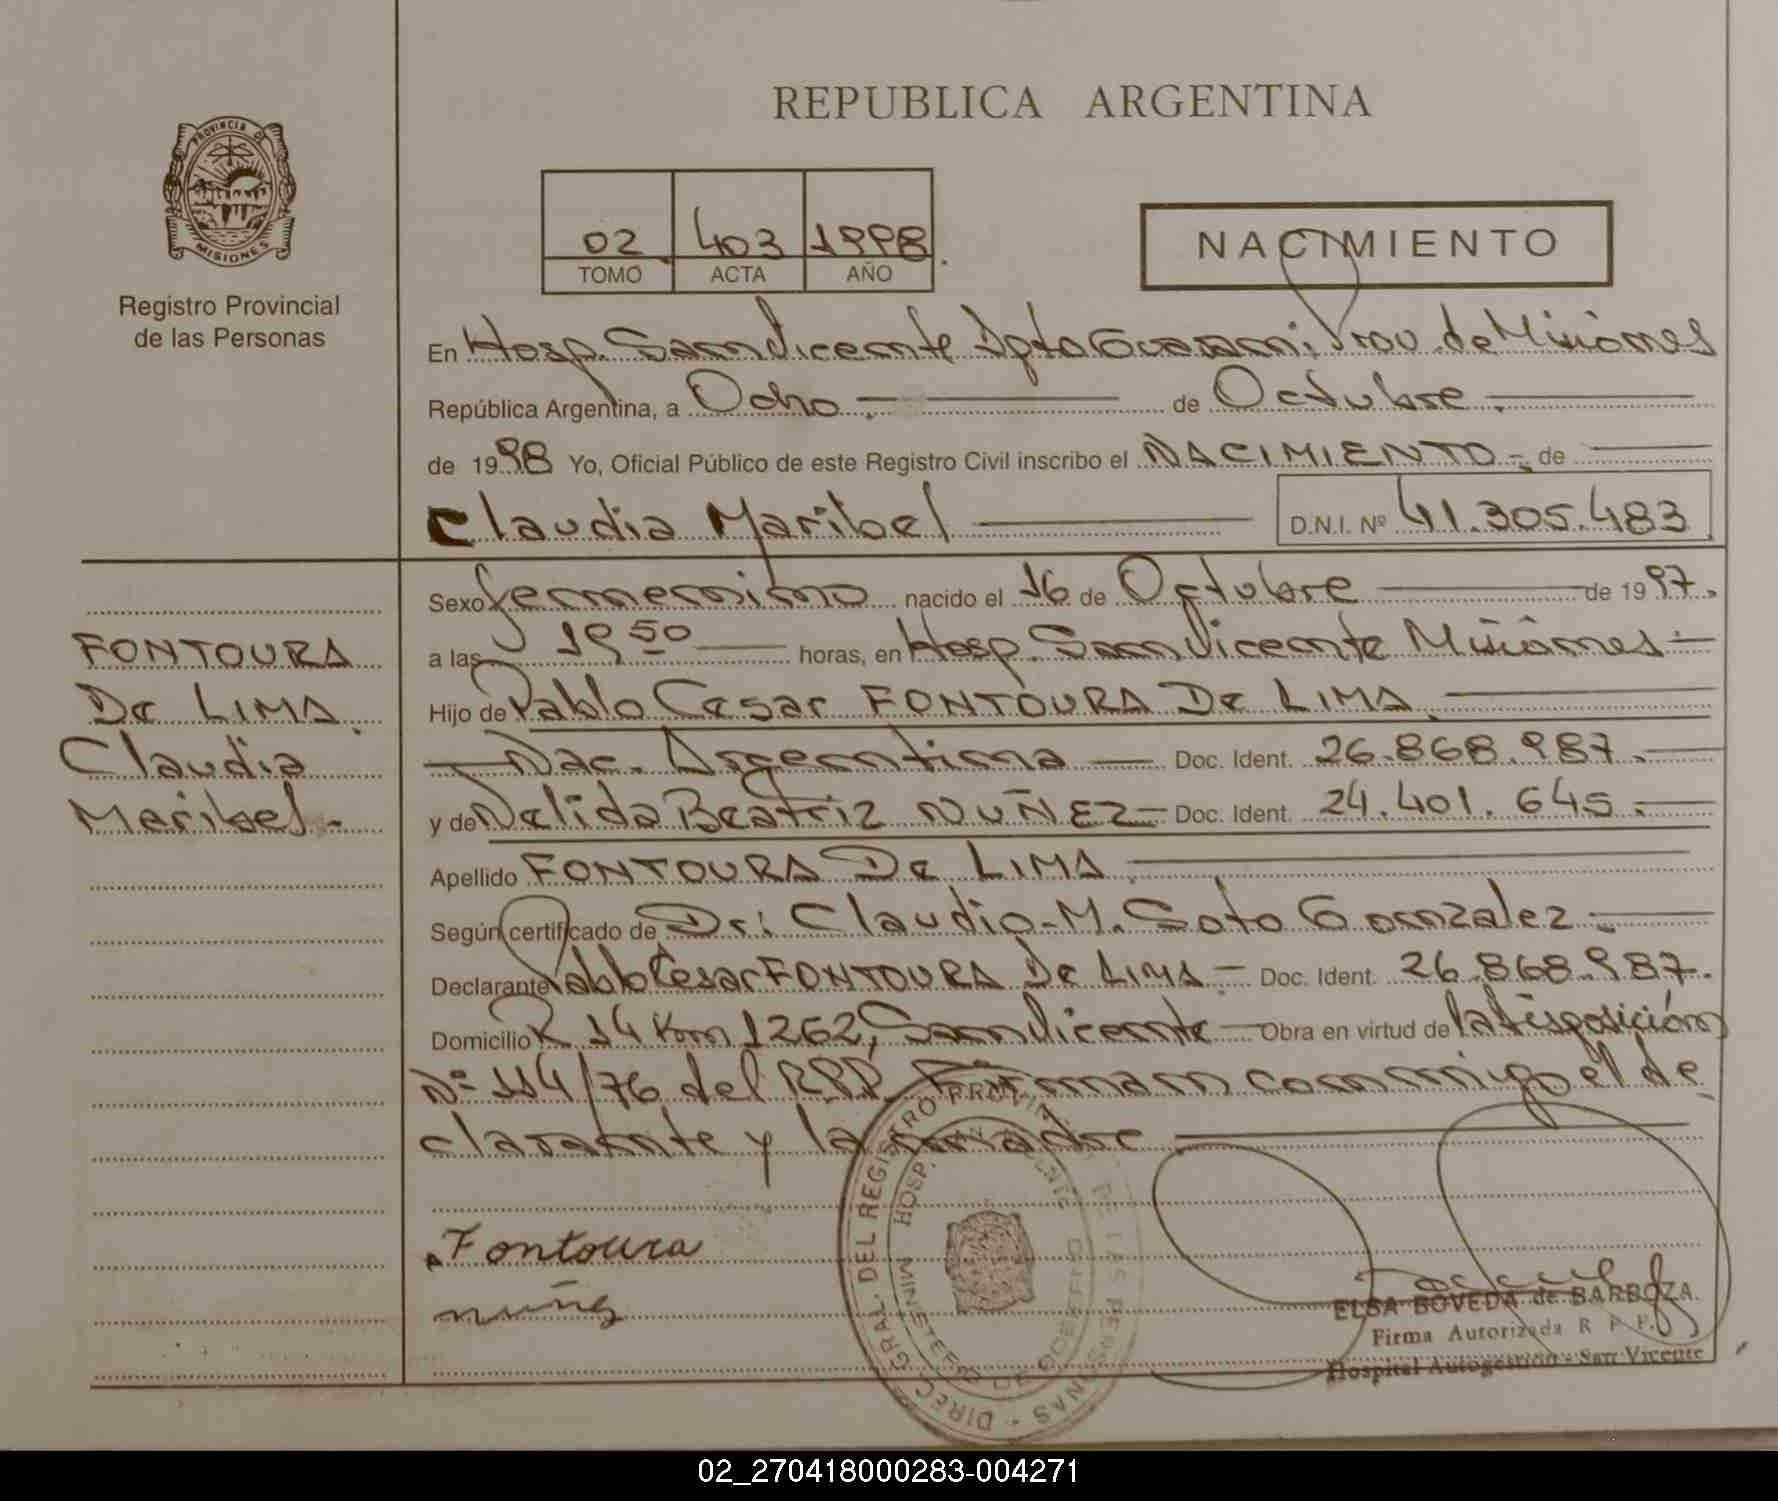 REPUBLICA ARGENTINA
PROVINCIA DE
MISIONES
Registro Provincial
de las Personas
02 403 1998
TOMO ACTA AÑO
NACIMIENTO
En Hosp. San Vicente Dpto Guarani Prov. de Misiones
República Argentina, a Ocho de Octubre
de 1998 Yo, Oficial Público de este Registro Civil inscribo el NACIMIENTO de
Claudia Maribel D.N.I. Nº 41.305.483
FONTOURA
De LIMA
Claudia
Maribel.-
Sexo femenino nacido el 16 de Octubre de 1997.
a las 19 50 horas, en Hosp. San Vicente Misiones
Hijo de Pablo Cesar FONTOURA De LIMA
Nac. Argentina Doc. Ident. 26.868.987.
y de Nelida Beatriz NUÑEZ Doc. Ident. 24.401.645.
Apellido FONTOURA De LIMA
Según certificado de Dr: Claudio M. Soto Gonzalez
Declarante Pablo Cesar FONTOURA De LIMA Doc. Ident. 26.868.987.
Domicilio R 14 Km 1262, San Vicente Obra en virtud de la Disposición
Nº 114/76 del RPP. Firman conmigo el de
clarante y la madre
Fontoura
nuñez
DIREC. GRAL. DEL REGISTRO PROVINCIAL DE LAS PERSONAS
HOSP. SAN VICENTE
MINISTERIO DE GOBIERNO
ELSA BOVEDA de BARBOZA
Firma Autorizada R P P.
Hospital Autogestión - San Vicente
02_270418000283-004271